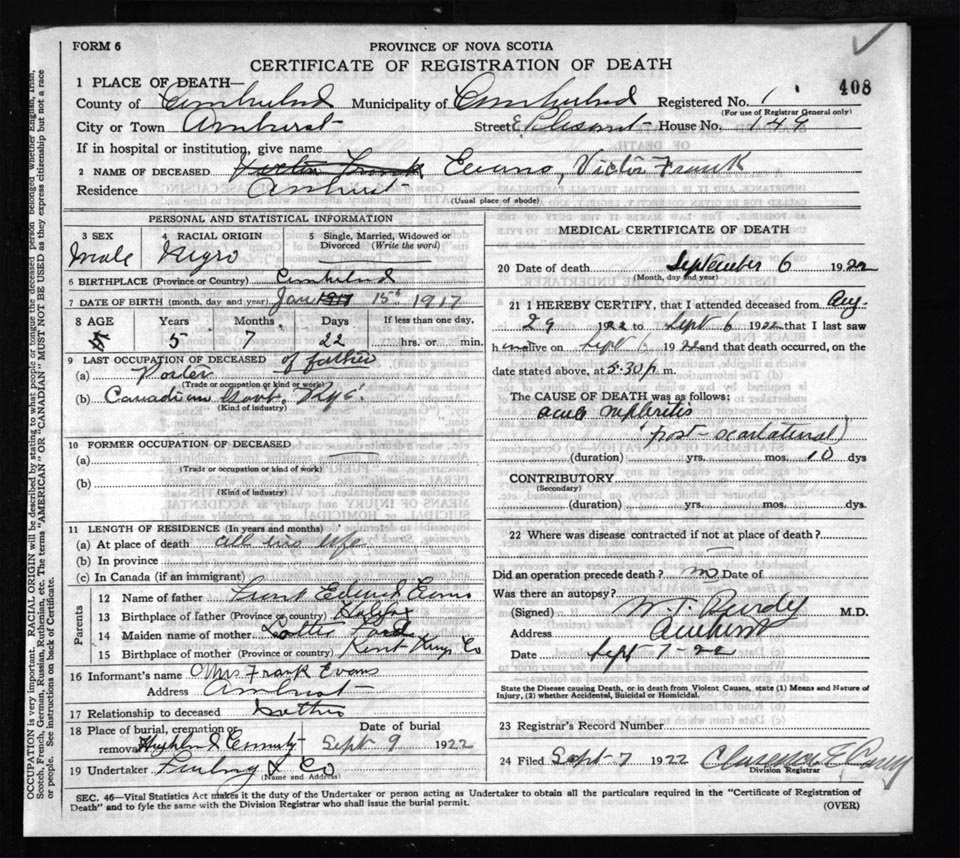 FORM 6
PROVINCE OF NOVA SCOTIA
CERTIFICATE OF REGISTRATION OF DEATH
408
1 PLACE OF DEATH—
County of Cumberland Municipality of Cumberland Registered No. 1
(For use of Registrar General only)
City or Town Amherst Street E. Pleasant House No. 149
If in hospital or institution, give name
2 NAME OF DECEASED Evans, Victor Frank
Residence Amherst
(Usual place of abode)
PERSONAL AND STATISTICAL INFORMATION
3 SEX 4 RACIAL ORIGIN 5 Single, Married, Widowed or Divorced (Write the word)
Male Negro
6 BIRTHPLACE (Province or Country) Cumberland
7 DATE OF BIRTH (month, day and year) Jany 15th 1917
8 AGE Years Months Days If less than one day,
5 7 22 hrs. or min.
9 LAST OCCUPATION OF DECEASED of father
(a) Porter
(Trade or occupation or kind or work)
(b) Canadian Govt. Rys.
(Kind of industry)
10 FORMER OCCUPATION OF DECEASED
(a)
(Trade or occupation or kind of work)
(b)
(Kind of industry)
11 LENGTH OF RESIDENCE (In years and months)
(a) At place of death all his life
(b) In province
(c) In Canada (if an immigrant)
Parents
12 Name of father Frank Edward Evans
13 Birthplace of father (Province or country) Halifax
14 Maiden name of mother Lottie Ford
15 Birthplace of mother (Province or country) Kent Kings Co
16 Informant's name Mrs Frank Evans
Address Amherst
17 Relationship to deceased Mother
18 Place of burial, cremation or removal Highland Cemetery Date of burial Sept 9 1922
19 Undertaker & Co
(Name and Address)
MEDICAL CERTIFICATE OF DEATH
20 Date of death September 6 1922
(Month, day and year)
21 I HEREBY CERTIFY, that I attended deceased from Aug.
29 1922 to Sept 6 1922 that I last saw
him alive on Sept 6 1922 and that death occurred, on the
date stated above, at 5.30 p. m.
The CAUSE OF DEATH was as follows:
acute nephritis
(post-scarlatinal)
(duration) yrs. mos. 10 dys
CONTRIBUTORY
(Secondary)
(duration) yrs. mos. dys.
22 Where was disease contracted if not at place of death?
Did an operation precede death? no Date of
Was there an autopsy?
(Signed) W. T. Purdy M.D.
Address Amherst
Date Sept-7-22
State the Disease causing Death, or in death from Violent Causes, state (1) Means and Nature of
Injury, (2) whether Accidental, Suicidal or Homicidal.
23 Registrar's Record Number
24 Filed Sept 7 1922
Division Registrar
SEC. 46—Vital Statistics Act makes it the duty of the Undertaker or person acting as Undertaker to obtain all the particulars required in the "Certificate of Registration of
Death" and to fyle the same with the Division Registrar who shall issue the burial permit.
(OVER)
OCCUPATION is very important. RACIAL ORIGIN will be described by stating to what people or tongue the deceased person belonged whether English, Irish,
Scotch, French, German, Russian, Ruthenian, etc. The terms "AMERICAN" OR "CANADIAN" MUST NOT BE USED as they express citizenship but not a race
or people. See instructions on back of Certificate.